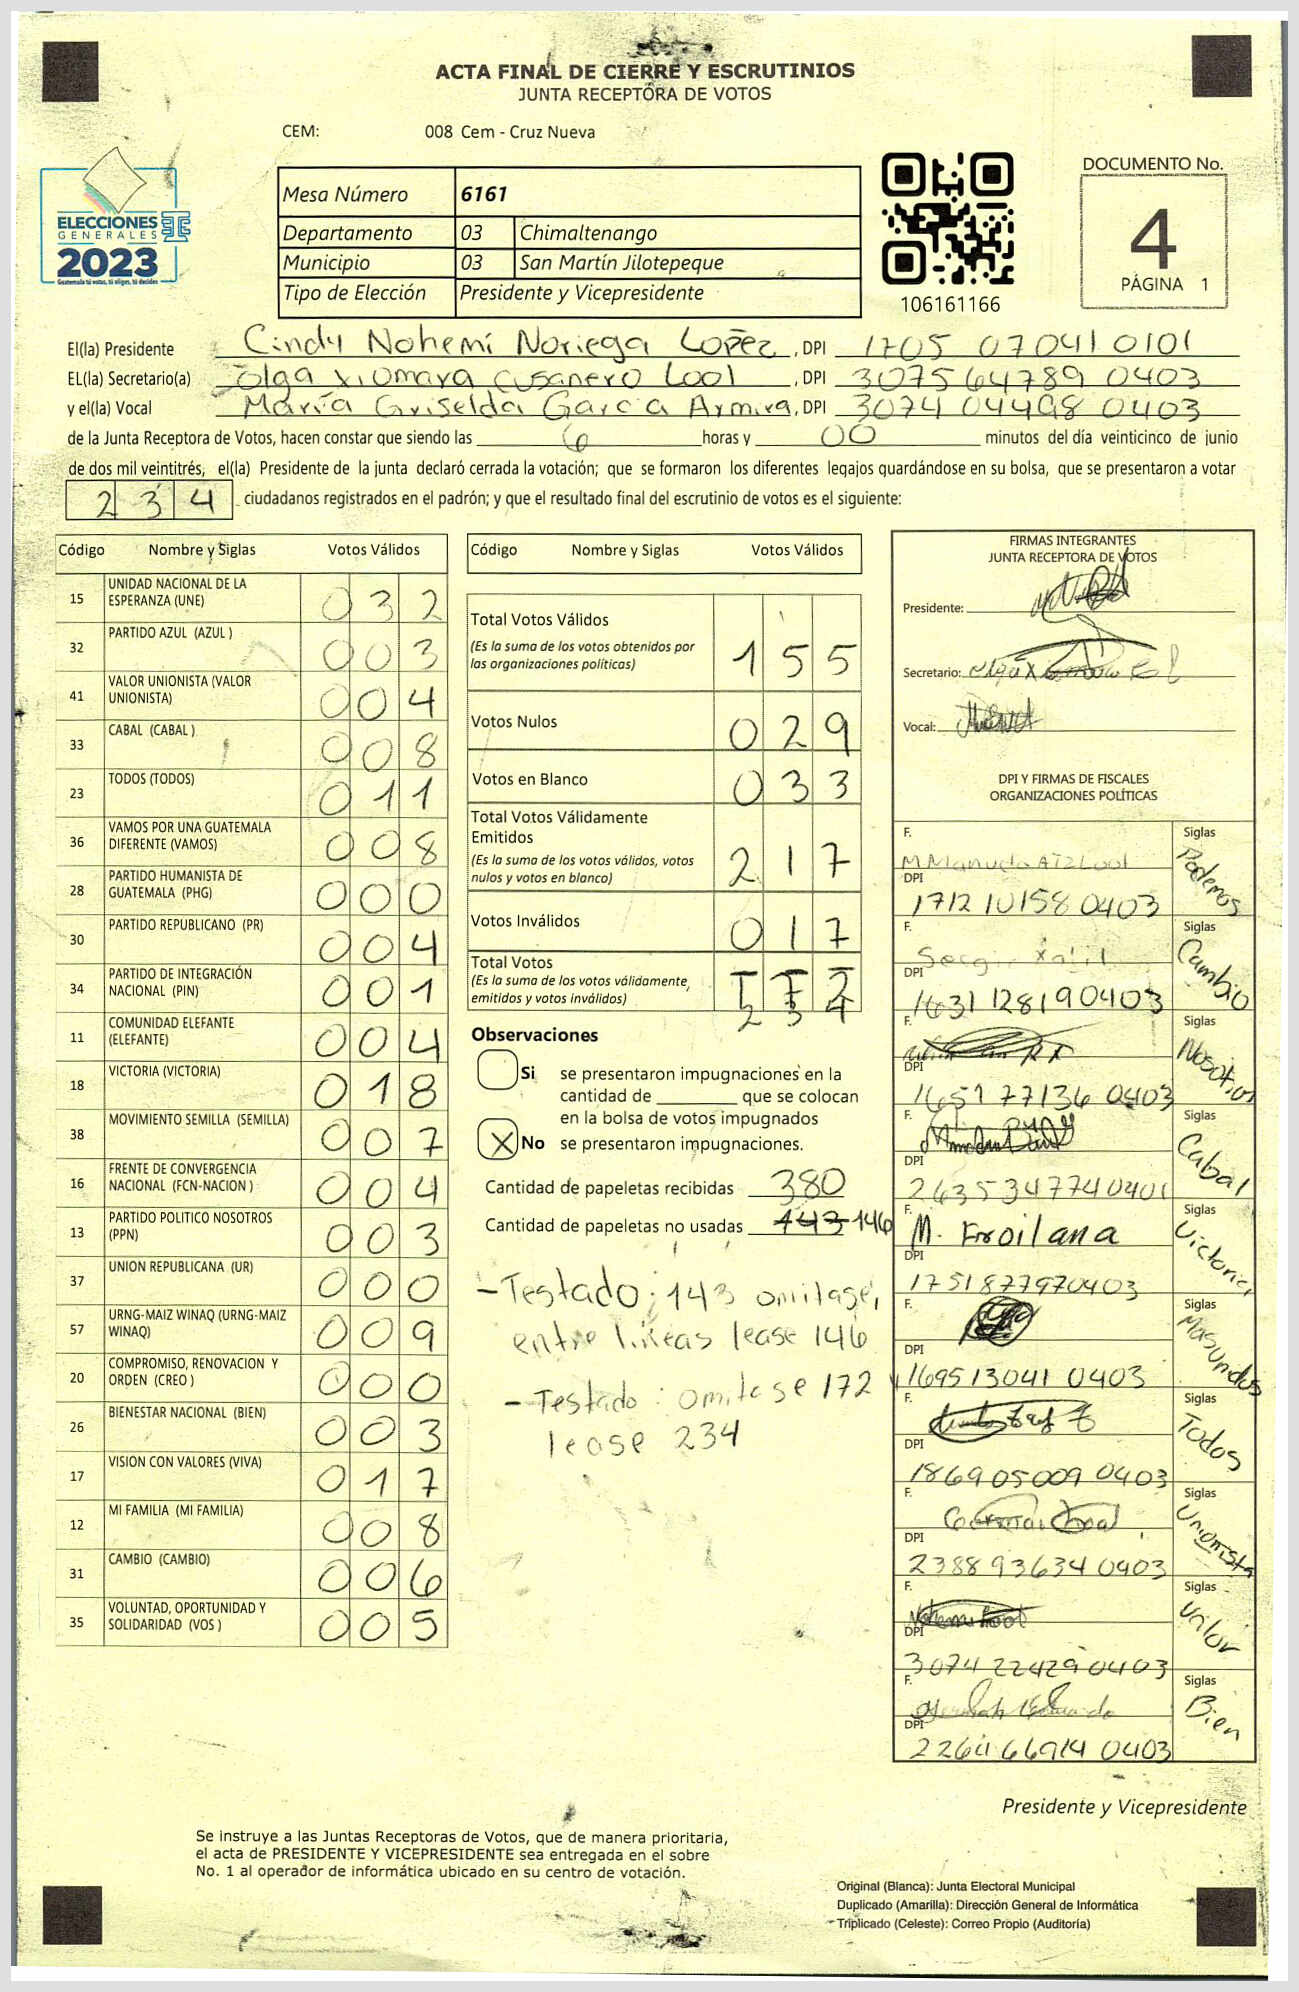 ACTA FINAL DE CIERRE Y ESCRUTINIOS
JUNTA RECEPTORA DE VOTOS
CEM: 008 Cem - Cruz Nueva
ELECCIONES
GENERALES
2023
Guatemala tú votas, tú eliges, tú decides
Mesa Número 6161
Departamento 03 Chimaltenango
Municipio 03 San Martín Jilotepeque
Tipo de Elección Presidente y Vicepresidente
106161166
DOCUMENTO No.
4
PÁGINA 1
El(la) Presidente Cindy Nohemí Noriega López, DPI 1705 07041 0101
EL(la) Secretario(a) Olga Xiomara Cusanero Lool, DPI 3075 64789 0403
y el(la) Vocal María Griselda García Armira, DPI 3074 04498 0403
de la Junta Receptora de Votos, hacen constar que siendo las 6 horas y 00 minutos del día veinticinco de junio
de dos mil veintitrés, el(la) Presidente de la junta declaró cerrada la votación; que se formaron los diferentes legajos quardándose en su bolsa, que se presentaron a votar
234 ciudadanos registrados en el padrón; y que el resultado final del escrutinio de votos es el siguiente:
Código Nombre y Siglas Votos Válidos
15 UNIDAD NACIONAL DE LA ESPERANZA (UNE) 032
32 PARTIDO AZUL (AZUL ) 003
41 VALOR UNIONISTA (VALOR UNIONISTA) 004
33 CABAL (CABAL ) 008
23 TODOS (TODOS) 011
36 VAMOS POR UNA GUATEMALA DIFERENTE (VAMOS) 008
28 PARTIDO HUMANISTA DE GUATEMALA (PHG) 000
30 PARTIDO REPUBLICANO (PR) 004
34 PARTIDO DE INTEGRACIÓN NACIONAL (PIN) 001
11 COMUNIDAD ELEFANTE (ELEFANTE) 004
18 VICTORIA (VICTORIA) 018
38 MOVIMIENTO SEMILLA (SEMILLA) 007
16 FRENTE DE CONVERGENCIA NACIONAL (FCN-NACION ) 004
13 PARTIDO POLITICO NOSOTROS (PPN) 003
37 UNION REPUBLICANA (UR) 000
57 URNG-MAIZ WINAQ (URNG-MAIZ WINAQ) 009
20 COMPROMISO, RENOVACION Y ORDEN (CREO ) 000
26 BIENESTAR NACIONAL (BIEN) 003
17 VISION CON VALORES (VIVA) 017
12 MI FAMILIA (MI FAMILIA) 008
31 CAMBIO (CAMBIO) 006
35 VOLUNTAD, OPORTUNIDAD Y SOLIDARIDAD (VOS ) 005
Código Nombre y Siglas Votos Válidos
Total Votos Válidos 155
(Es la suma de los votos obtenidos por
las organizaciones políticas)
Votos Nulos 029
Votos en Blanco 033
Total Votos Válidamente
Emitidos 217
(Es la suma de los votos válidos, votos
nulos y votos en blanco)
Votos Inválidos 017
Total Votos 172
(Es la suma de los votos válidamente,
emitidos y votos inválidos) 234
Observaciones
Si se presentaron impugnaciones en la
cantidad de ________ que se colocan
en la bolsa de votos impugnados
X No se presentaron impugnaciones.
Cantidad de papeletas recibidas 380
Cantidad de papeletas no usadas 143 146
- Testado: 143 omitase,
entre líneas lease 146
- Testado: omitase 172 y
lease 234
FIRMAS INTEGRANTES
JUNTA RECEPTORA DE VOTOS
Presidente:
Secretario:
Vocal:
DPI Y FIRMAS DE FISCALES
ORGANIZACIONES POLÍTICAS
F. Siglas
Podemos
DPI
1712 10158 0403
F. Siglas
Cambio
DPI
1631 12819 0403
F. Siglas
Nosotros
DPI
1651 77136 0403
F. Siglas
Cabal
DPI
2635 34774 0401
F. M. Froilana Siglas
Victoria
DPI
1751877970403
F. Siglas
DPI
1695 13041 0403
F. Siglas
Todos
DPI
1869 05009 0403
F. Siglas
Unionista
DPI
2388 93634 0403
F. Siglas
Valor
DPI
3074 22429 0403
F. Siglas
Bien
DPI
2264 66914 0403
Presidente y Vicepresidente
Se instruye a las Juntas Receptoras de Votos, que de manera prioritaria,
el acta de PRESIDENTE Y VICEPRESIDENTE sea entregada en el sobre
No. 1 al operador de informática ubicado en su centro de votación.
Original (Blanca): Junta Electoral Municipal
Duplicado (Amarilla): Dirección General de Informática
Triplicado (Celeste): Correo Propio (Auditoría)